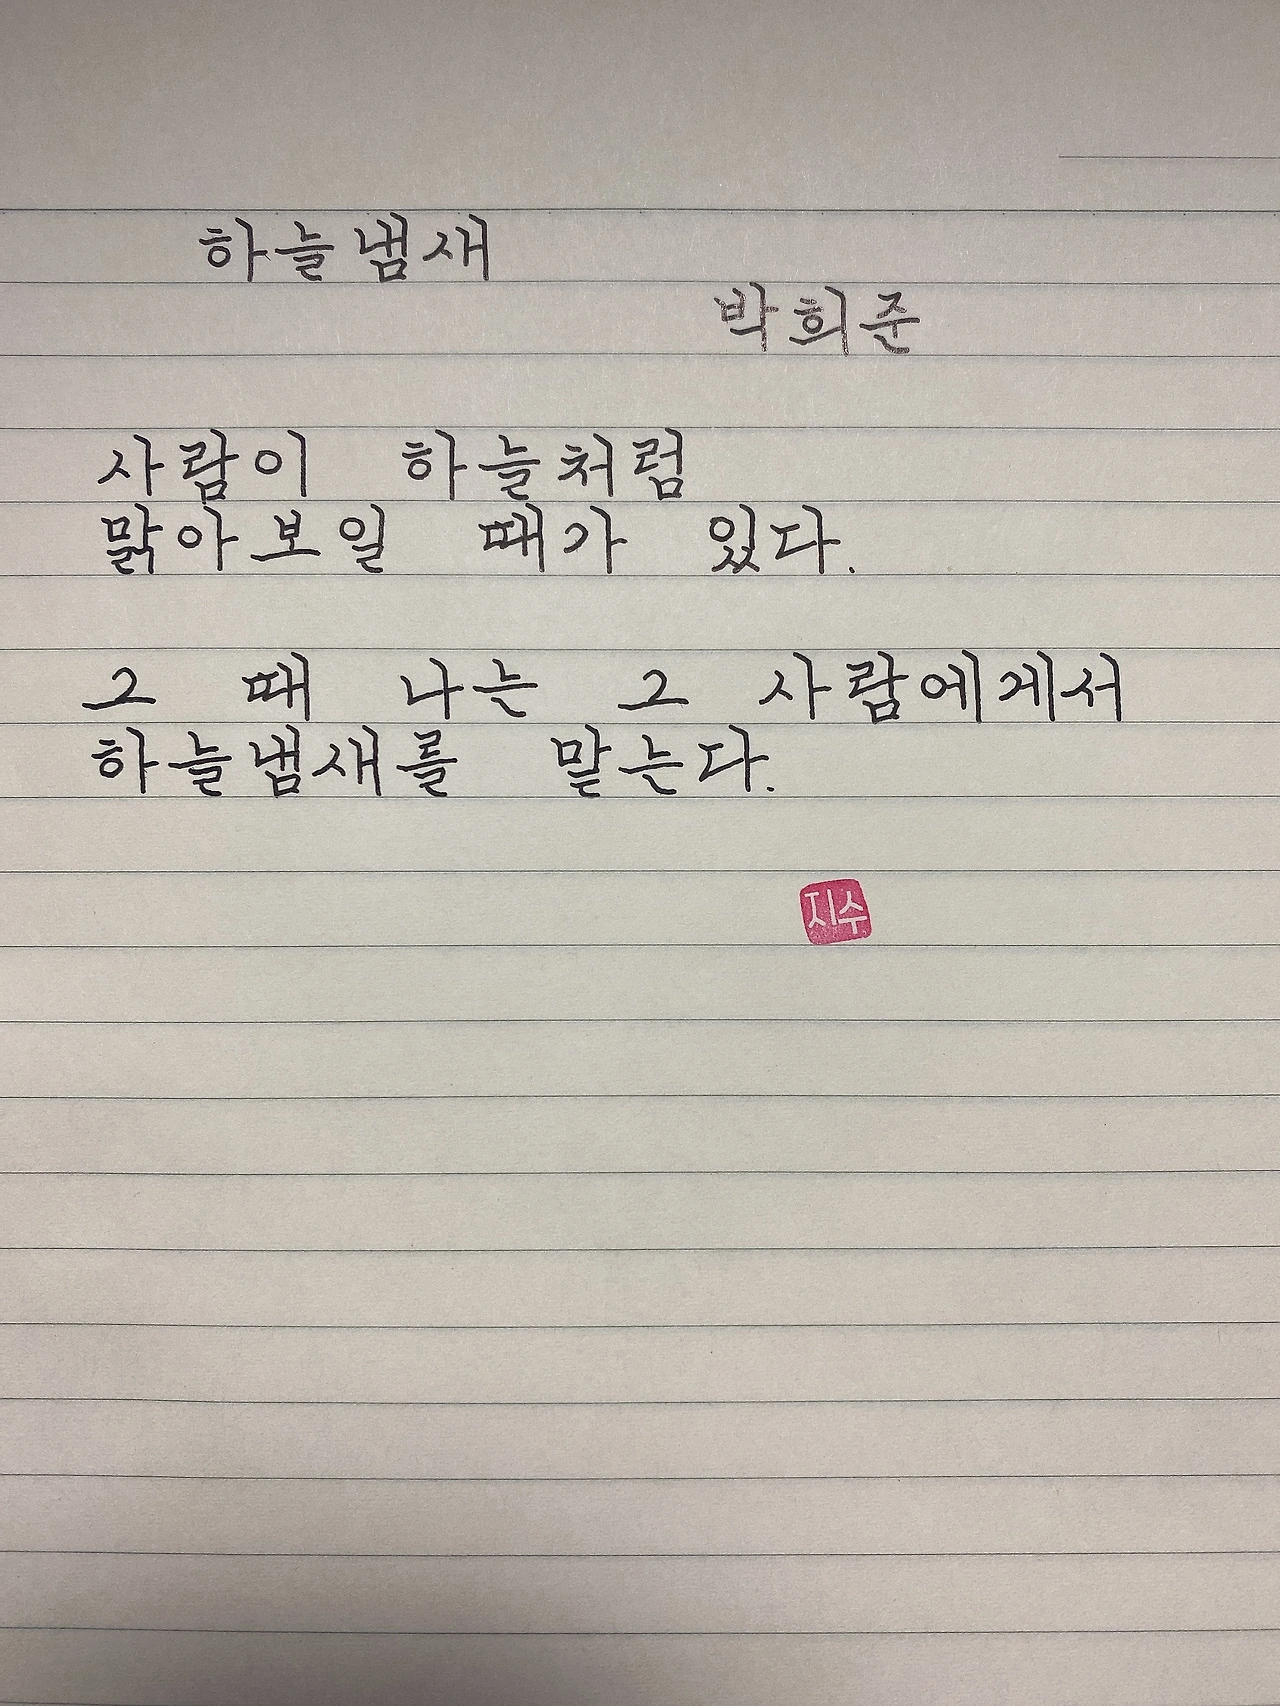 하늘냄새
박희준
사람이 하늘처럼
맑아보일 때가 있다.
그 때 나는 그 사람에게서
하늘냄새를 맡는다.
지수